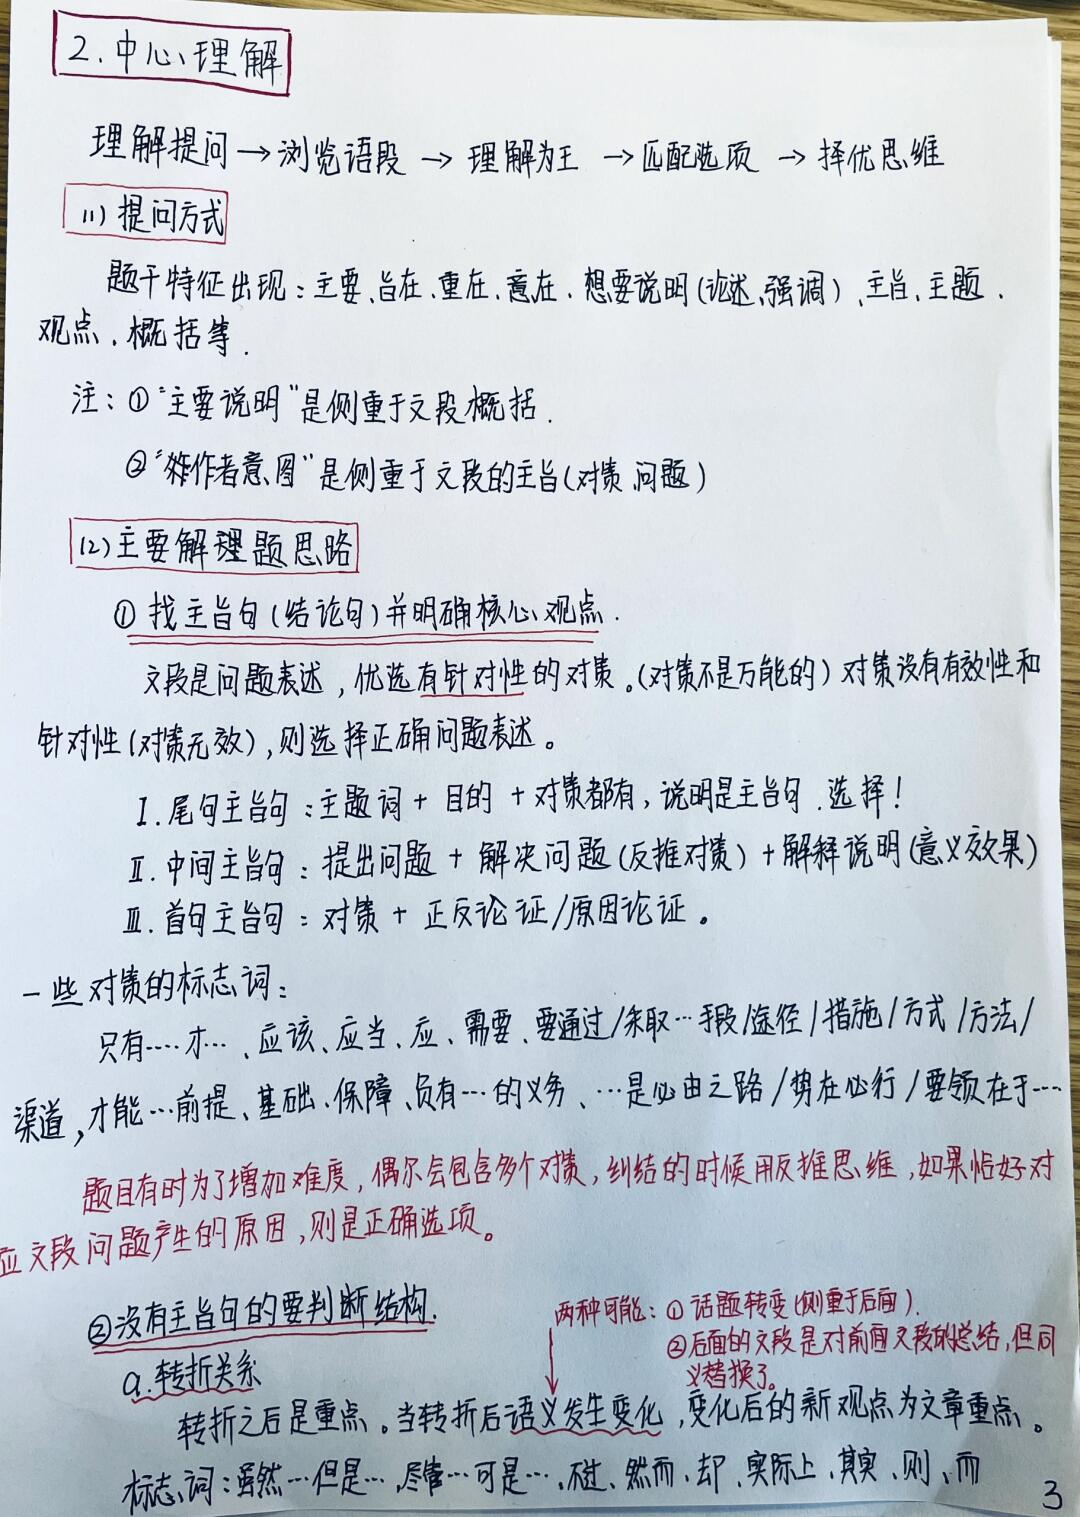 2.中心理解
理解提问→浏览语段→理解为王→匹配选项→择优思维
(1)提问方式
题干特征出现:主要、旨在、重在、意在、想要说明(论述、强调)、主旨、主题、
观点、概括等.
注:①“主要说明”是侧重于文段概括.
②“作者意图”是侧重于文段的主旨(对策、问题)
(2)主要解理题思路
①找主旨句(结论句)并明确核心观点.
文段是问题表述,优选有针对性的对策。(对策不是万能的)对策没有有效性和
针对性(对策无效),则选择正确问题表述。
Ⅰ.尾句主旨句:主题词+目的+对策都有,说明是主旨句.选择!
Ⅱ.中间主旨句:提出问题+解决问题(反推对策)+解释说明(意义效果)
Ⅲ.首句主旨句:对策+正反论证/原因论证。
一些对策的标志词:
只有……才…、应该、应当、应、需要、要通过/采取…手段/途径/措施/方式/方法/
渠道,才能…前提、基础、保障、负有…的义务、…是必由之路/势在必行/要领在于……
题目有时为了增加难度,偶尔会包含多个对策,纠结的时候用反推思维,如果恰好对
应文段问题产生的原因,则是正确选项。
②没有主旨句的要判断结构.
两种可能:①话题转变(侧重于后面).
②后面的文段是对前面文段的总结,但同
义替换了。
a.转折关系
转折之后是重点。当转折后语义发生变化,变化后的新观点为文章重点。
标志词:虽然…但是…、尽管…可是…、不过、然而、却、实际上、其实、则、而
3